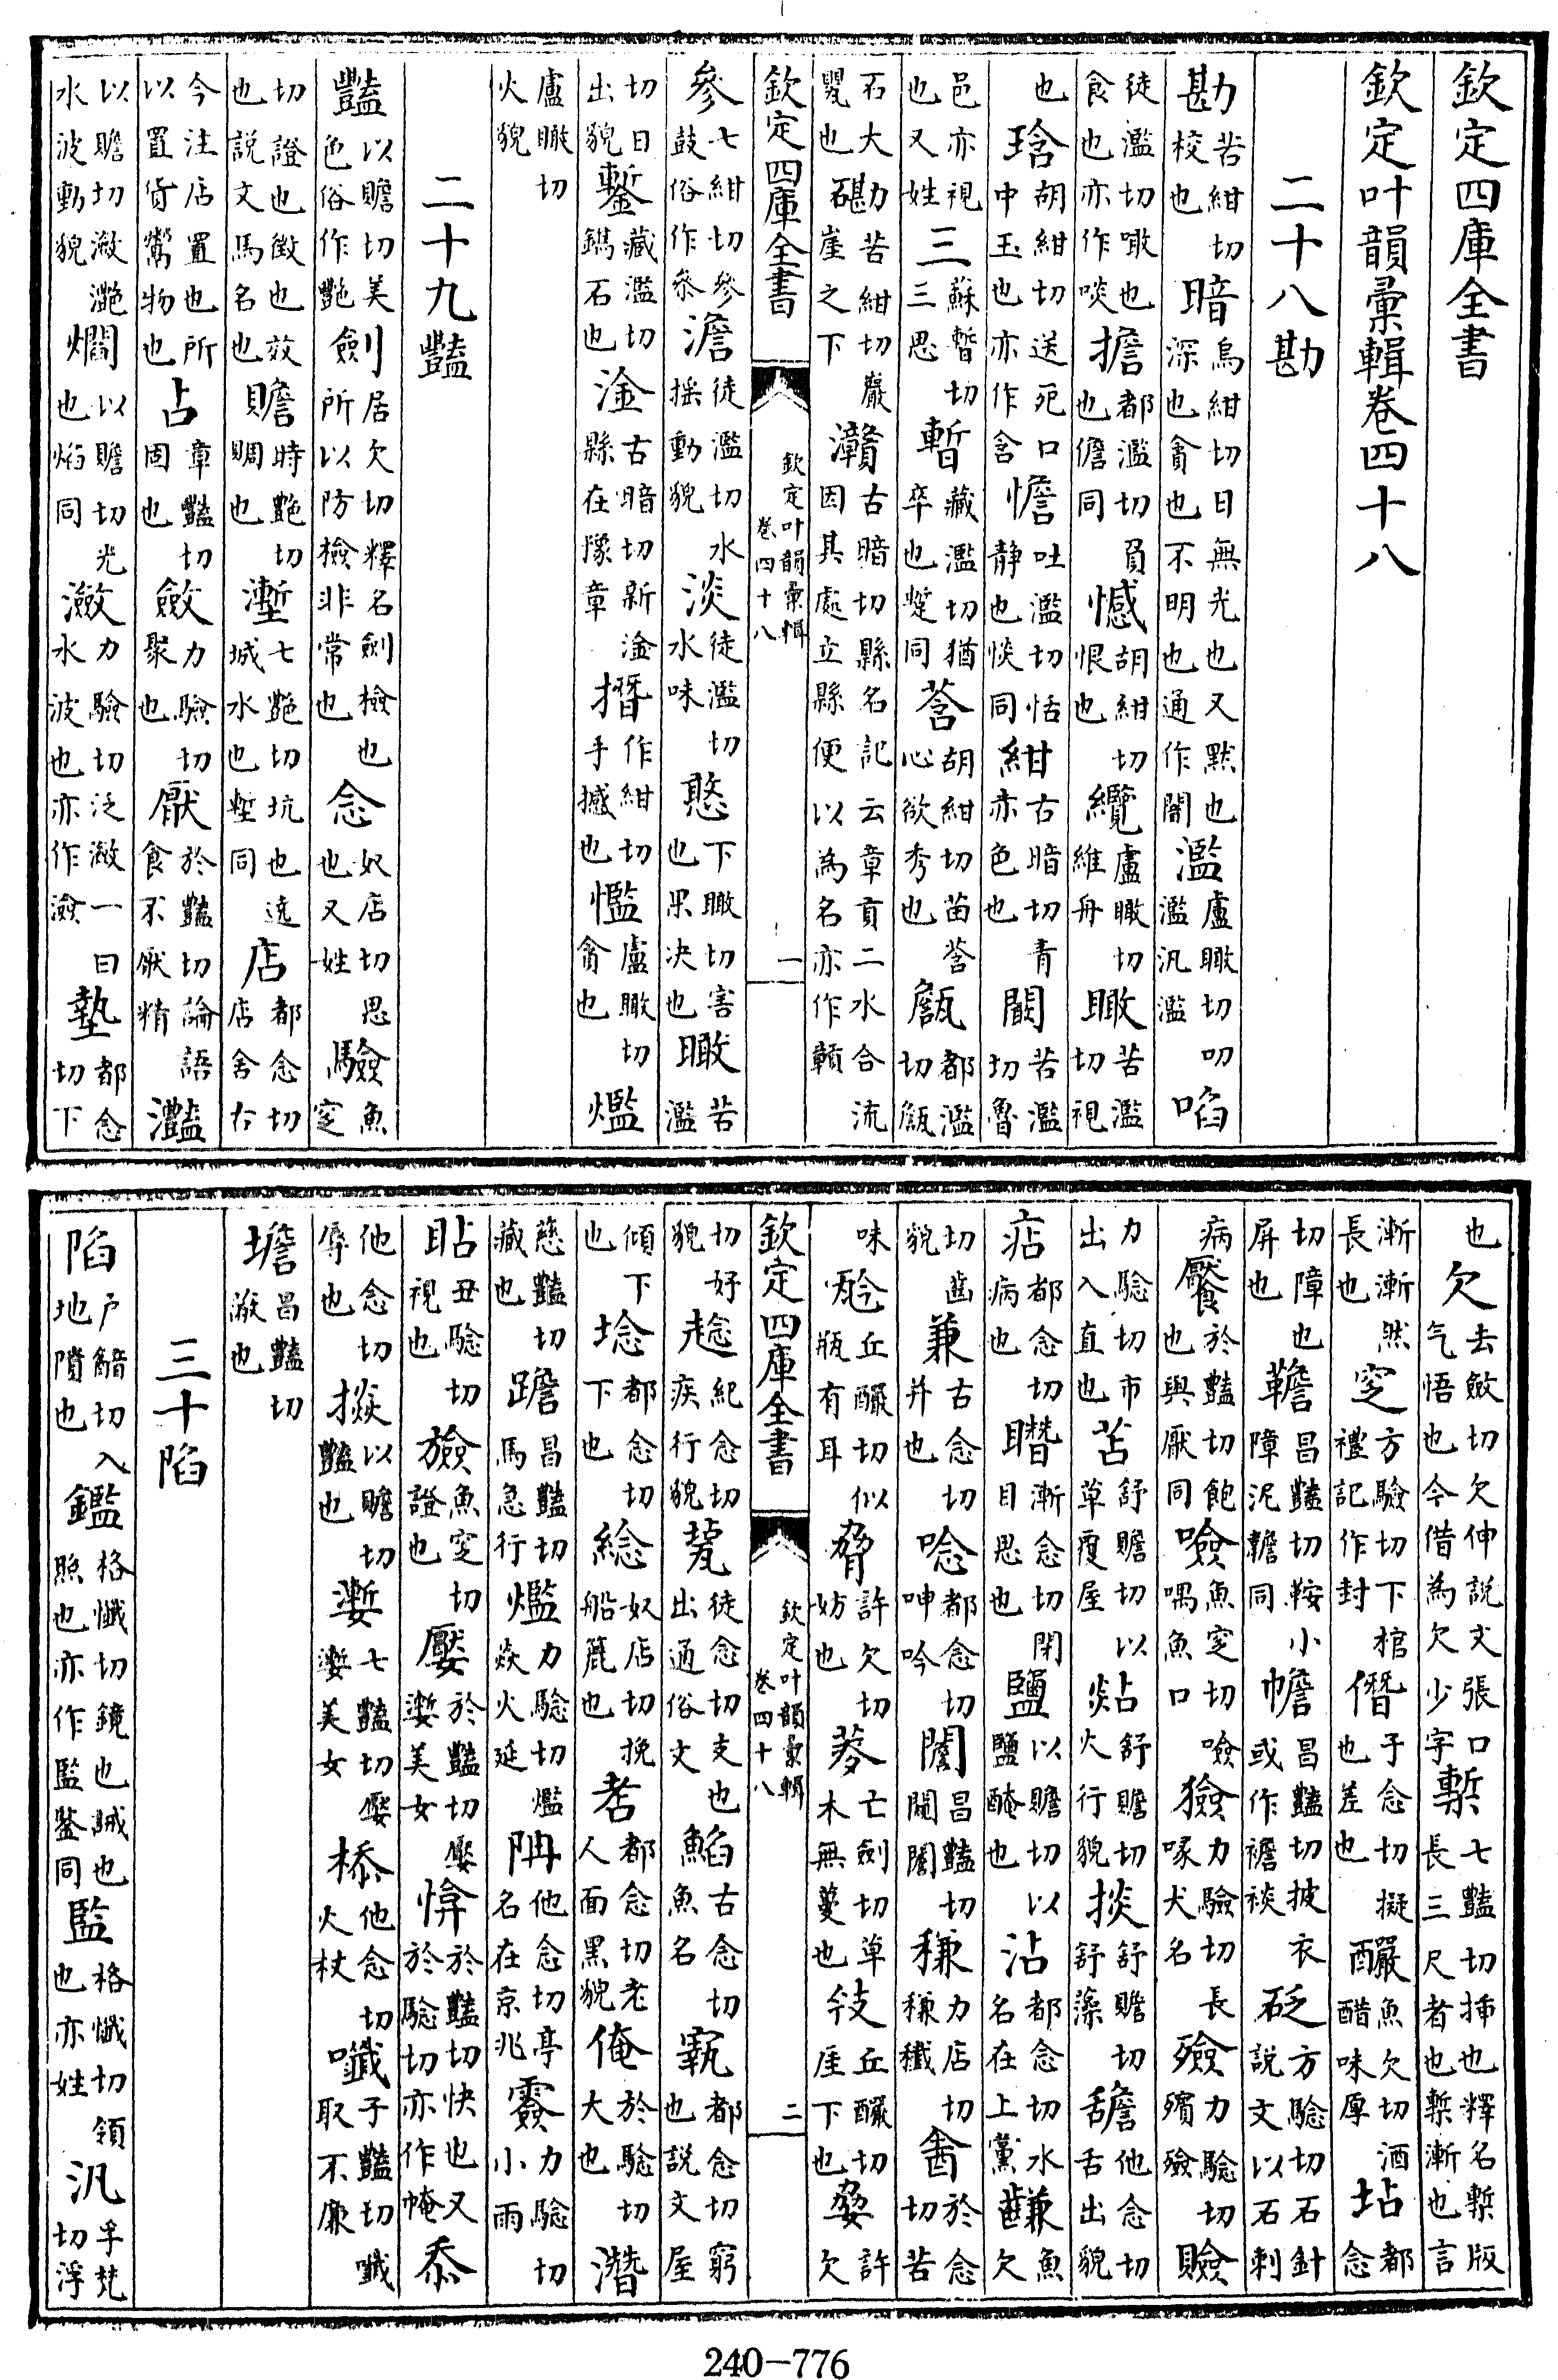 欽定四庫全書
欽定叶韻彙輯卷四十八
二十八勘
勘苦紺切校也暗烏紺切日無光也又黙也深也貪也不明也通作闇濫盧瞰切叨濫汎濫啗
徒濫切噉也食也亦作啖擔都濫切負也儋同憾胡紺切恨也纜盧瞰切維舟瞰苦濫切視
也琀胡紺切送死口中玉也亦作含憺吐濫切恬静也惔同紺古暗切青赤色也闞苦濫切魯
邑亦視也又姓三蘇暫切三思暫藏濫切猶卒也蹔同莟胡紺切苗莟心欲秀也甔都濫切甔
石大甖也磡苦紺切巖崖之下灨古暗切縣名記云章貢二水合流因其處立縣便以為名亦作贛
欽定四庫全書 欽定叶韻彙輯 卷四十八 一
參七紺切參鼓俗作叅澹徒濫切水揺動貌淡徒濫切水味憨下瞰切害也果决也瞰苦濫
切日出貌鏨藏濫切鐫石也淦古暗切新淦縣在豫章撍作紺切手撼也懢盧瞰切貪也爁
盧瞰切火貌
二十九豔
豔以贍切美色俗作艶劍居欠切釋名劍檢也所以防檢非常也念奴店切思也又姓驗魚窆
切證也徵也效也説文馬名也贍時艶切賙也塹七艶切坑也遶城水也壍同店都念切店舍古
今注店置也所以置貨鬻物也占章豔切固也斂力驗切聚也厭於豔切論語食不厭精灩
以贍切瀲灩水波動貌爓以贍切光也焰同瀲力驗切泛瀲一曰水波也亦作澰墊都念切下
也欠去斂切欠伸説文張口气悟也今借為欠少字槧七豔切揷也釋名槧版長三尺者也槧漸也言
漸漸然長也窆方驗切下棺禮記作封僭子念切擬也差也釅魚欠切酒醋味厚坫都念
切障也屏也韂昌豔切鞍小障泥韂同幨昌豔切披衣或作襜裧砭方驗切石針説文以石刺
病饜於豔切飽也與厭同噞魚窆切噞喁魚口獫力驗切長喙犬名殮力驗切殯殮
力驗切市出入直也苫舒贍切以草覆屋煔舒贍切火行貌掞舒贍切舒藻舚他念切舌出貌
痁都念切病也漸念切閉目思也鹽以贍切以鹽醃也沾都念切水名在上黨䶢魚欠
切齒貌兼古念切并也唸都念切呻吟昌豔切稴力店切酓於念切苦
味丘釅切似瓶有耳脅許欠切妨也亡劍切草木無蔓也丘釅切厓下也許欠
切好貌趝紀念切疾行貌徒念切支也出通俗文䱤古念切魚名都念切窮也説文屋
傾下也埝都念切下也奴店切挽船也都念切老人面黑貌俺於驗切大也潛
慈豔切藏也昌豔切馬急行爁力驗切爁焱火延他念切亭名在京兆力驗切小雨
覘丑驗切視也魚窆切證也嬮於豔切嬮㜞美女於豔切快也又於驗切亦作忝
他念切辱也掞以贍切豔也㜞七豔切嬮㜞美女㮇他念切火杖子豔切取不廉
昌豔切也
三十陷
陷戶韽切入地隤也鑑格懺切鏡也誡也照也亦作監鍳同監格懺切領也亦姓汎孚梵切浮
欽定四庫全書 欽定叶韻彙輯 卷四十八 二
240-776